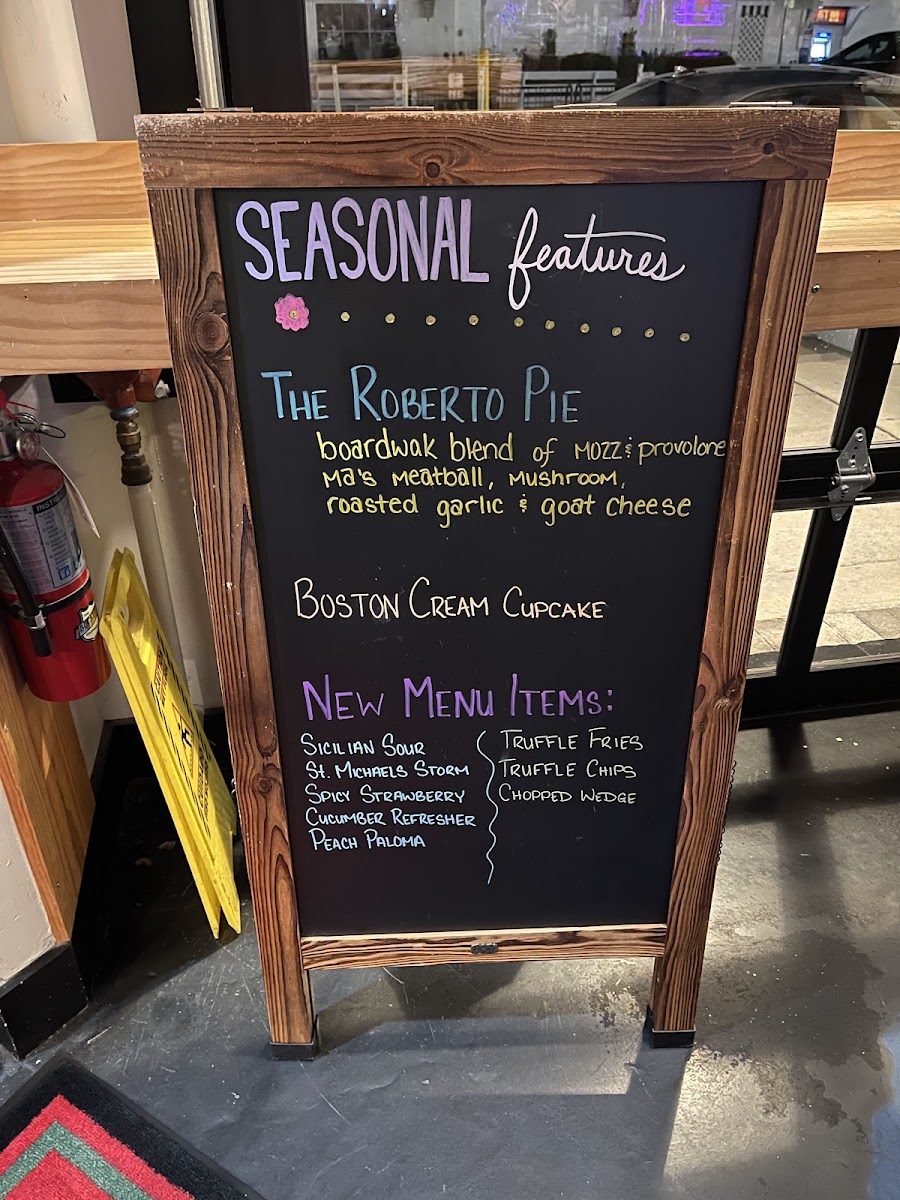 SEASONAL features
THE ROBERTO PIE
boardwak blend of MOZZ & provolone
Ma's Meatball, Mushroom,
roasted garlic & goat cheese
BOSTON CREAM CUPCAKE
NEW MENU ITEMS:
SICILIAN SOUR
St. MICHAELS STORM
SPICY STRAWBERRY
CUCUMBER REFRESHER
PEACH PALOMA
TRUFFLE FRIES
TRUFFLE CHIPS
CHOPPED WEDGE